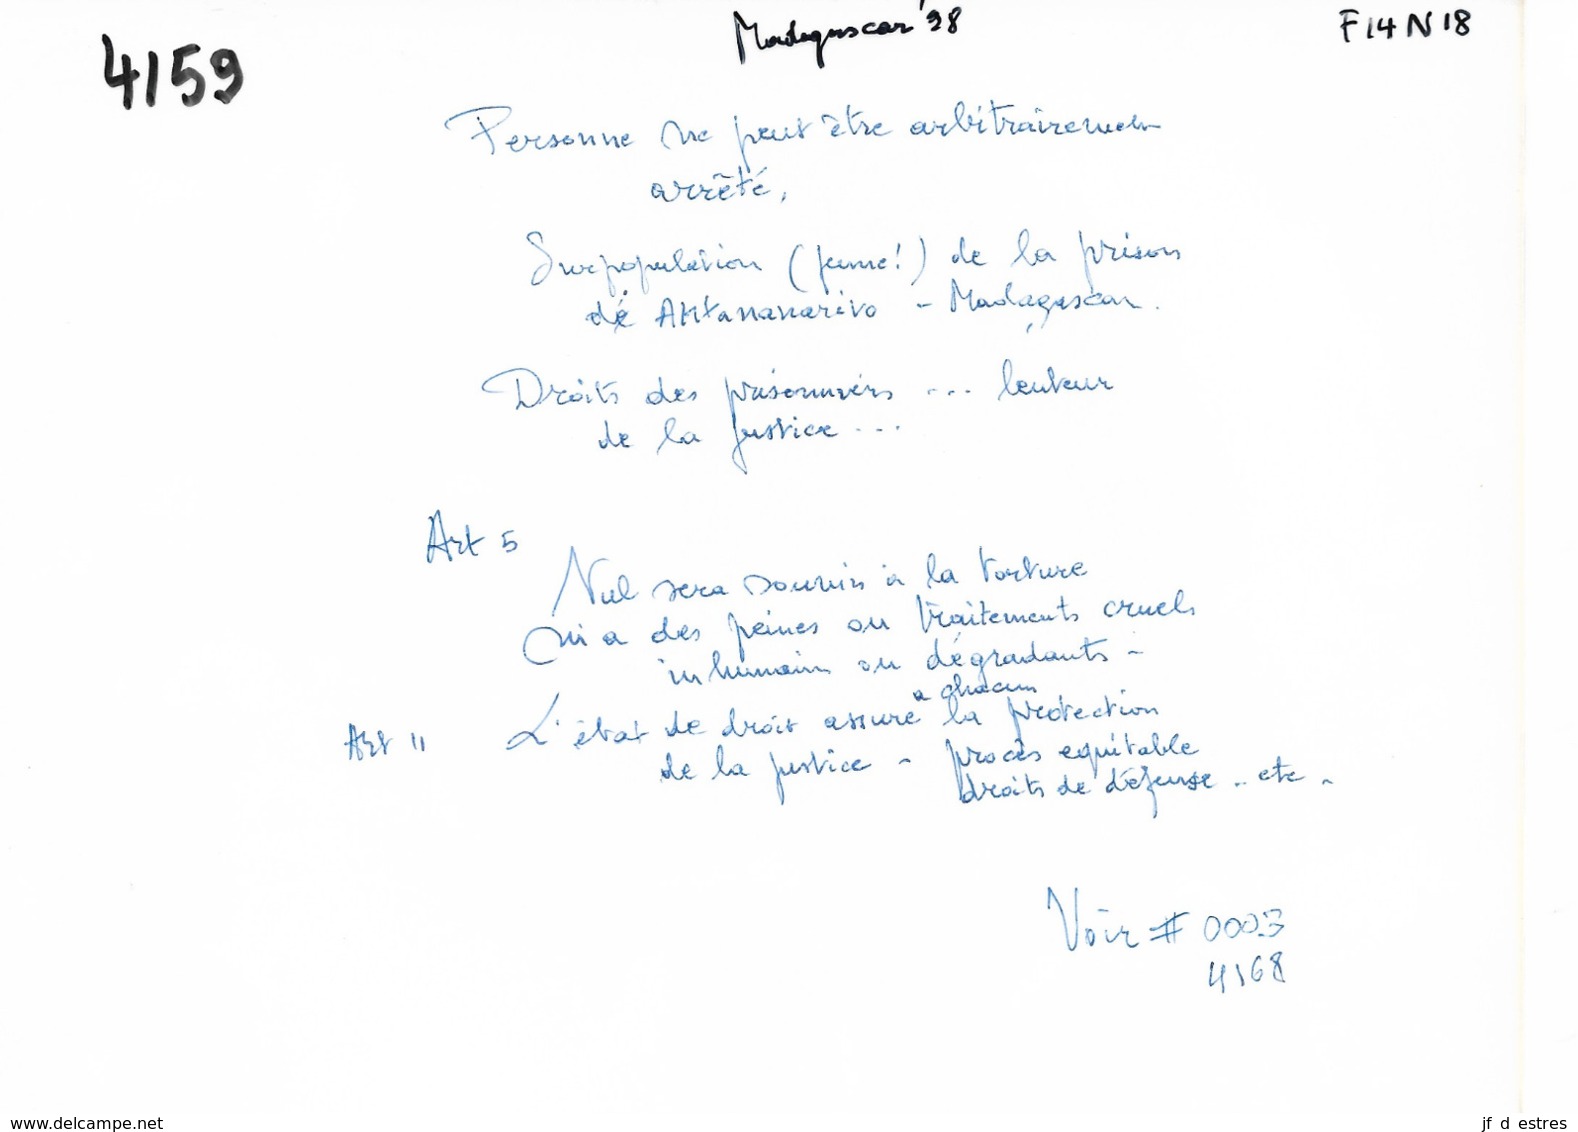 4159
Madagascar '98
F14N18
Personne ne peut être arbitrairement
arrêté,
Surpopulation (jeune!) de la prison
de Antananarivo - Madagascar.
Droits des prisonniers ... lenteur
de la justice ...
Art 5
Nul sera soumis à la torture
ni a des peines ou traitements cruels
inhumain ou dégradants -
a chacun
Art 11 L'état de droit assure la protection
de la justice - procès equitable
droits de défense .. etc -
Voir # 0003
4168
www.delcampe.net
jf d estres